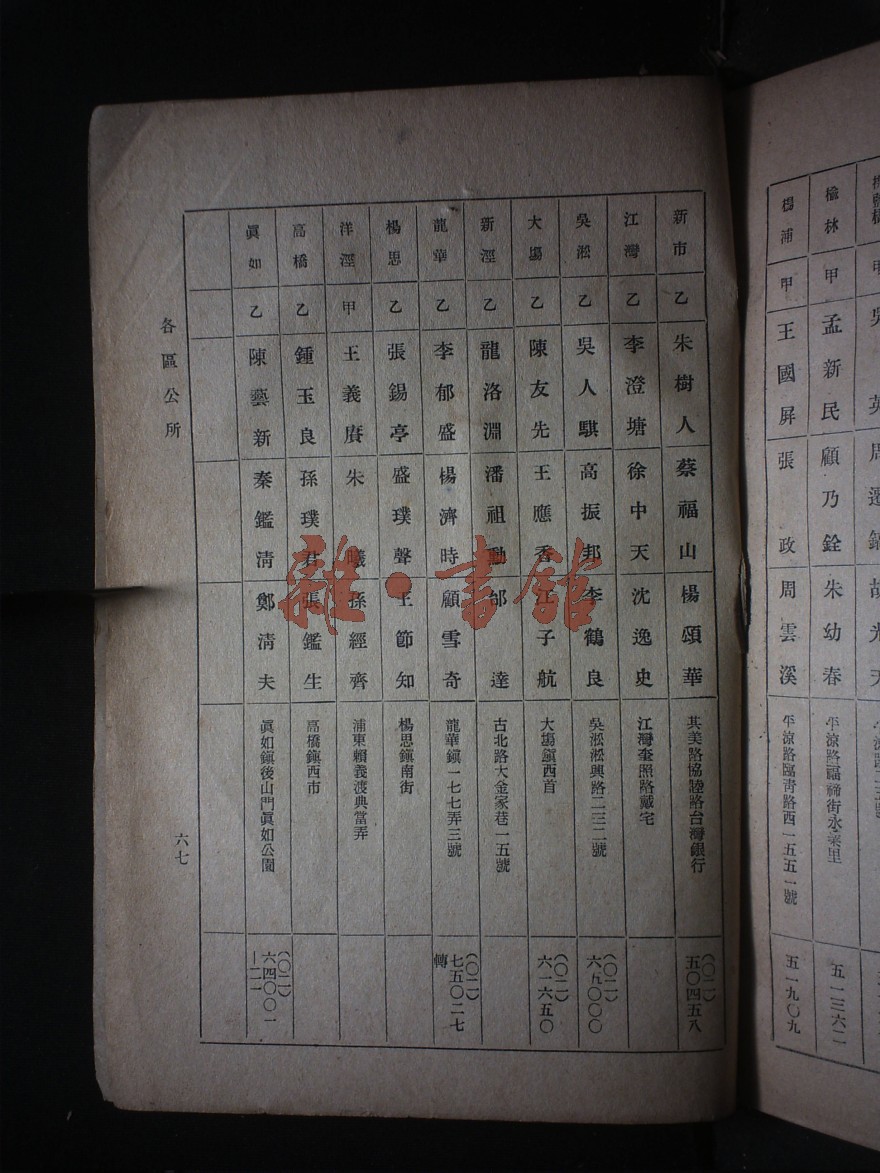 榆林 甲 孟新民 顧乃銓 朱幼春 平涼路福禘街永業里 五一三六二
楊浦 甲 王國屏 張政 周雲溪 平涼路臨青路西一五五一號 五一九〇九
新市 乙 朱樹人 蔡福山 楊頌華 其美路協陸路台灣銀行 (〇二)五〇四五八
江灣 乙 李澄塘 徐中天 沈逸史 江灣奎照路戴宅
吳淞 乙 吳人騏 高振邦 李鶴良 吳淞淞興路二三二號 (〇二)六九〇〇〇
大場 乙 陳友先 王應香 江子航 大場鎭西首 (〇二)六一六五〇
新涇 乙 龍洛淵 潘祖勳 邰達 古北路大金家巷一五號
龍華 乙 李郁盛 楊濟時 顧雪奇 龍華鎭一七七弄三號 (〇二)七五〇二七轉
楊思 乙 張錫亭 盛璞聲 王節知 楊思鎭南街
洋涇 甲 王義賡 朱曦 孫經齊 浦東賴義渡典當弄
高橋 乙 鍾玉良 孫璞君 張鑑生 高橋鎭西市
眞如 乙 陳藝新 秦鑑淸 鄭淸夫 眞如鎭後山門眞如公園 (〇二)六四〇〇一—二一
各區公所 六七
雜·書館